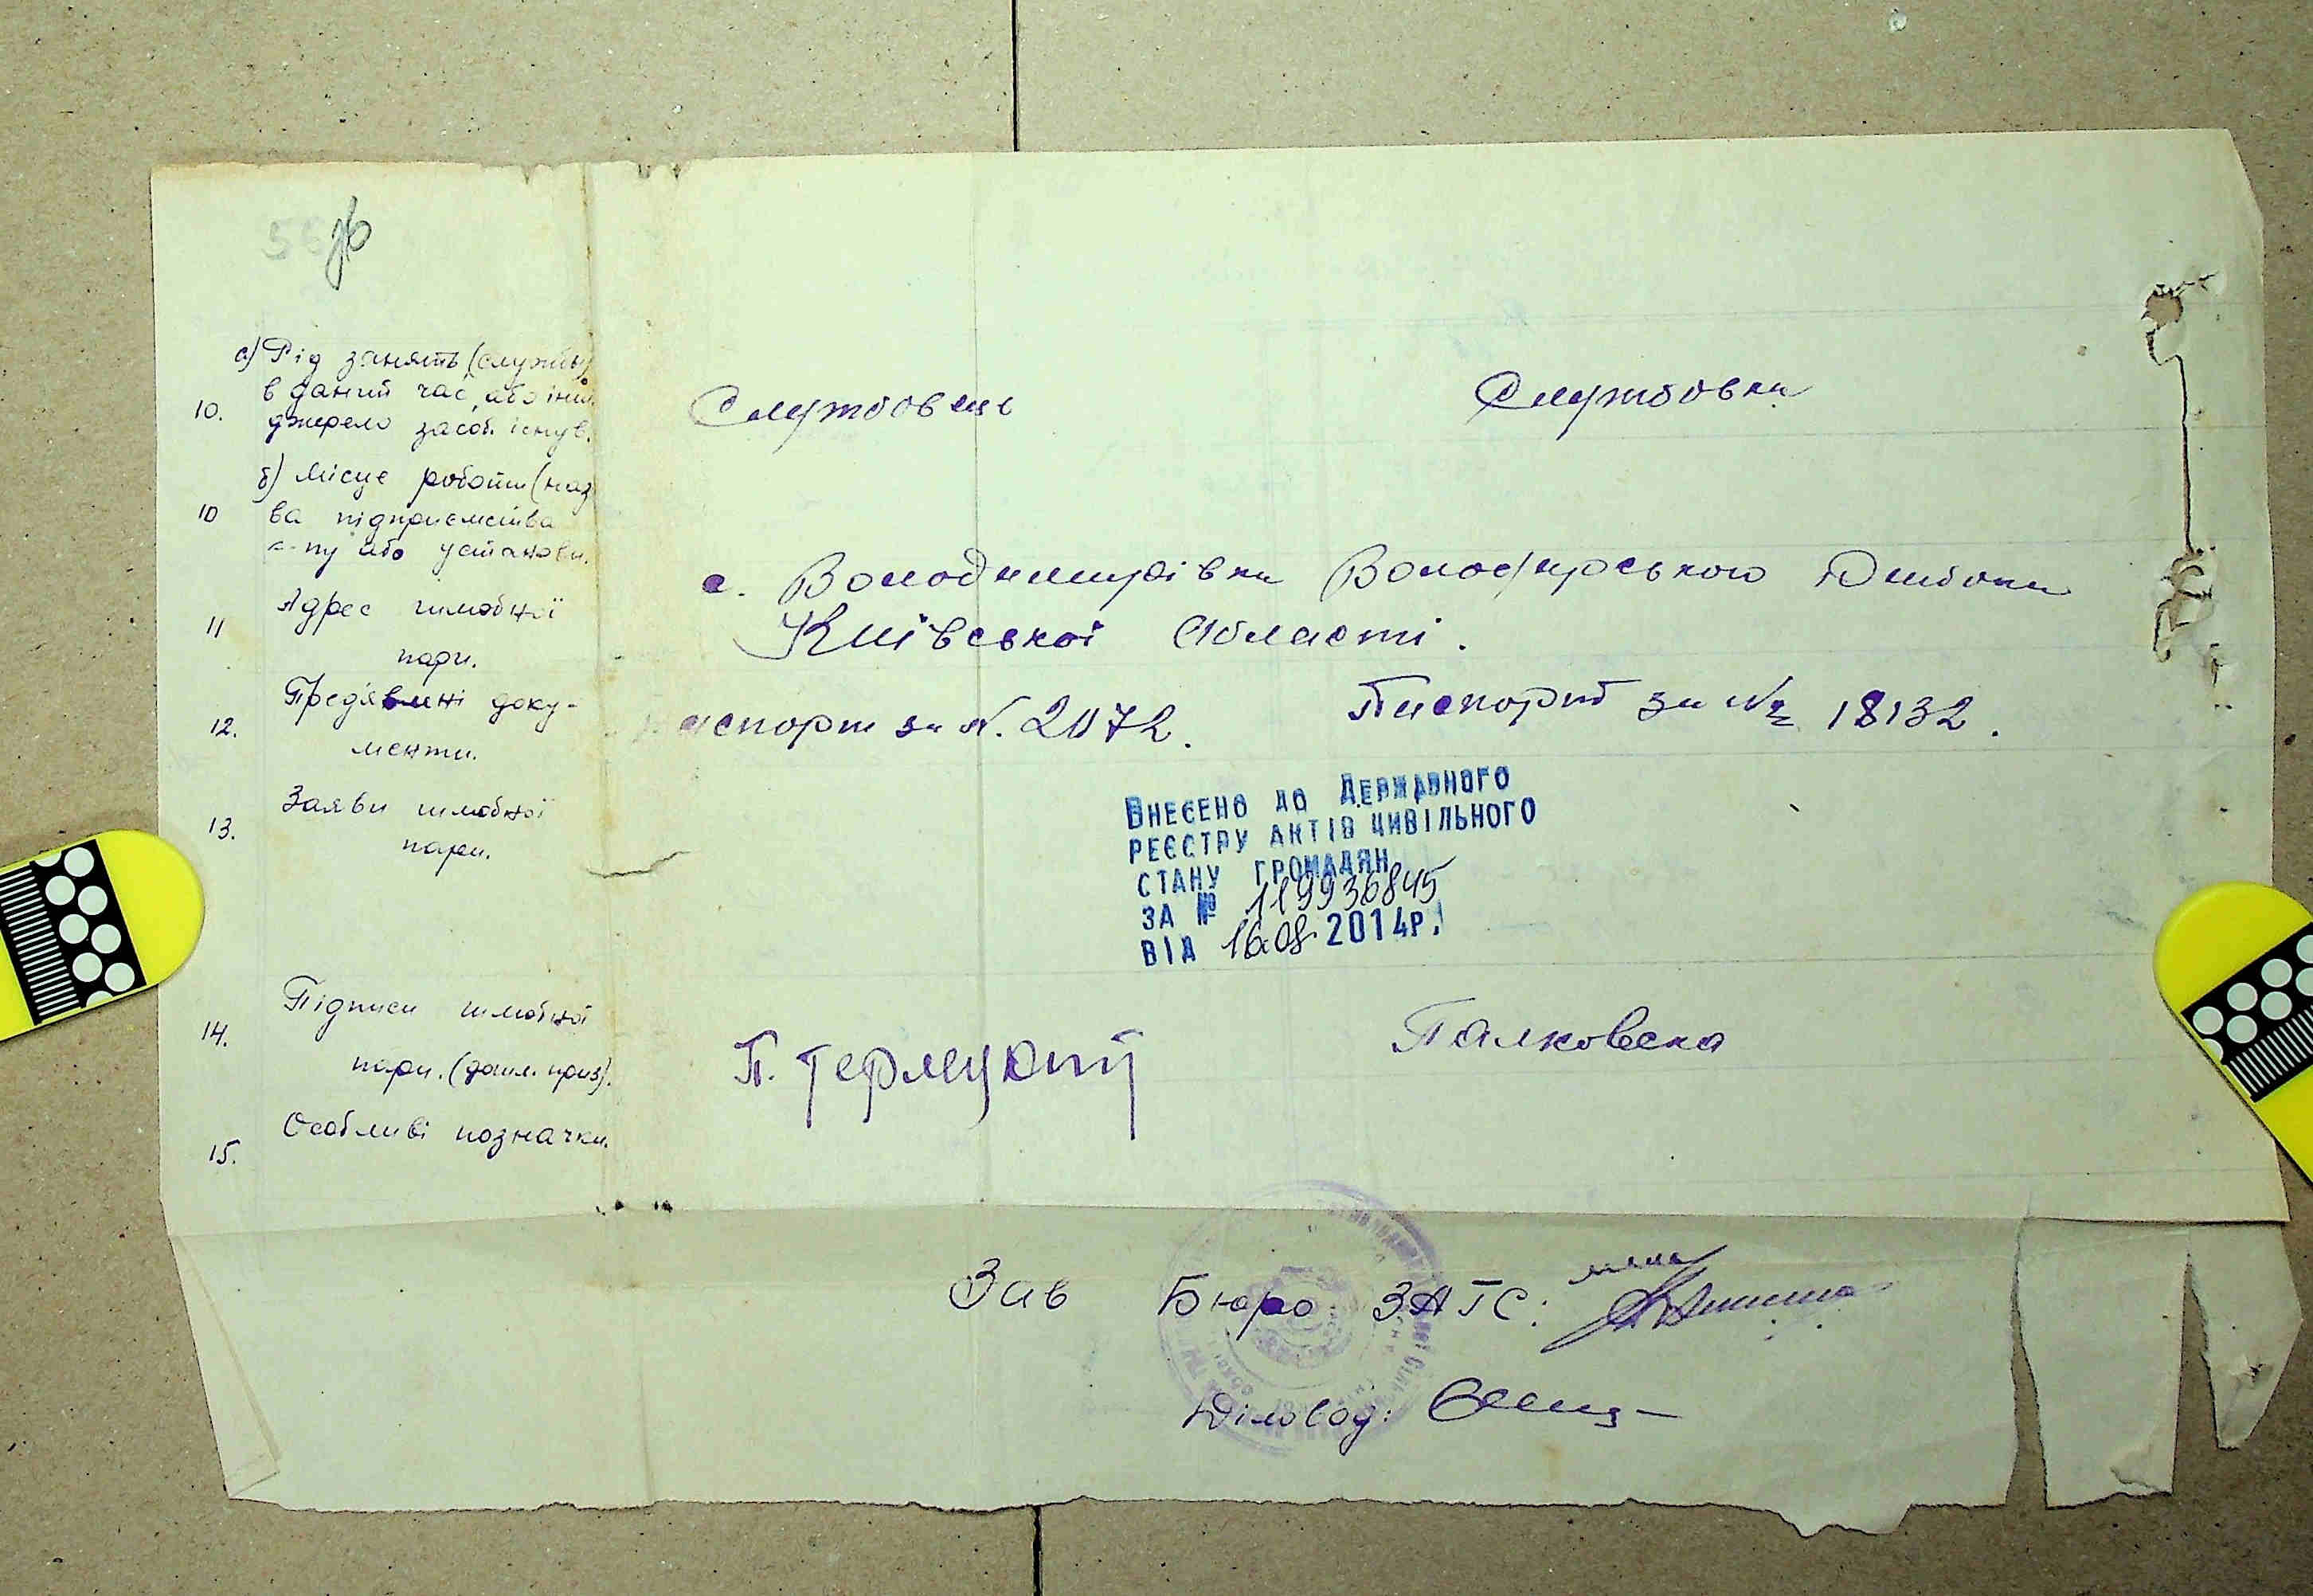 а) Рід занять (служби)
10. в даний час, або інш.
джерело засоб. існув.
Службовець Службовка
б) Місце роботи (наз
10 ва підприємства
к-пу або установи.
11 Адрес шлюбної
пари.
с. Володимирівка Володарського
Київської Області.
12. Предявлені доку-
менти.
аспорт за N. 2072. Паспорт за № 18132.
13. Заяви шлюбної
пари.
Внесено до Державного
реєстру актів цивільного
стану громадян
за № 119936845
від 16.08 2014р.
14. Підписи шлюбної
пари.
П. Палковска
15. Особливі позначки.
Зав Бюро ЗАГС:
Діловод: